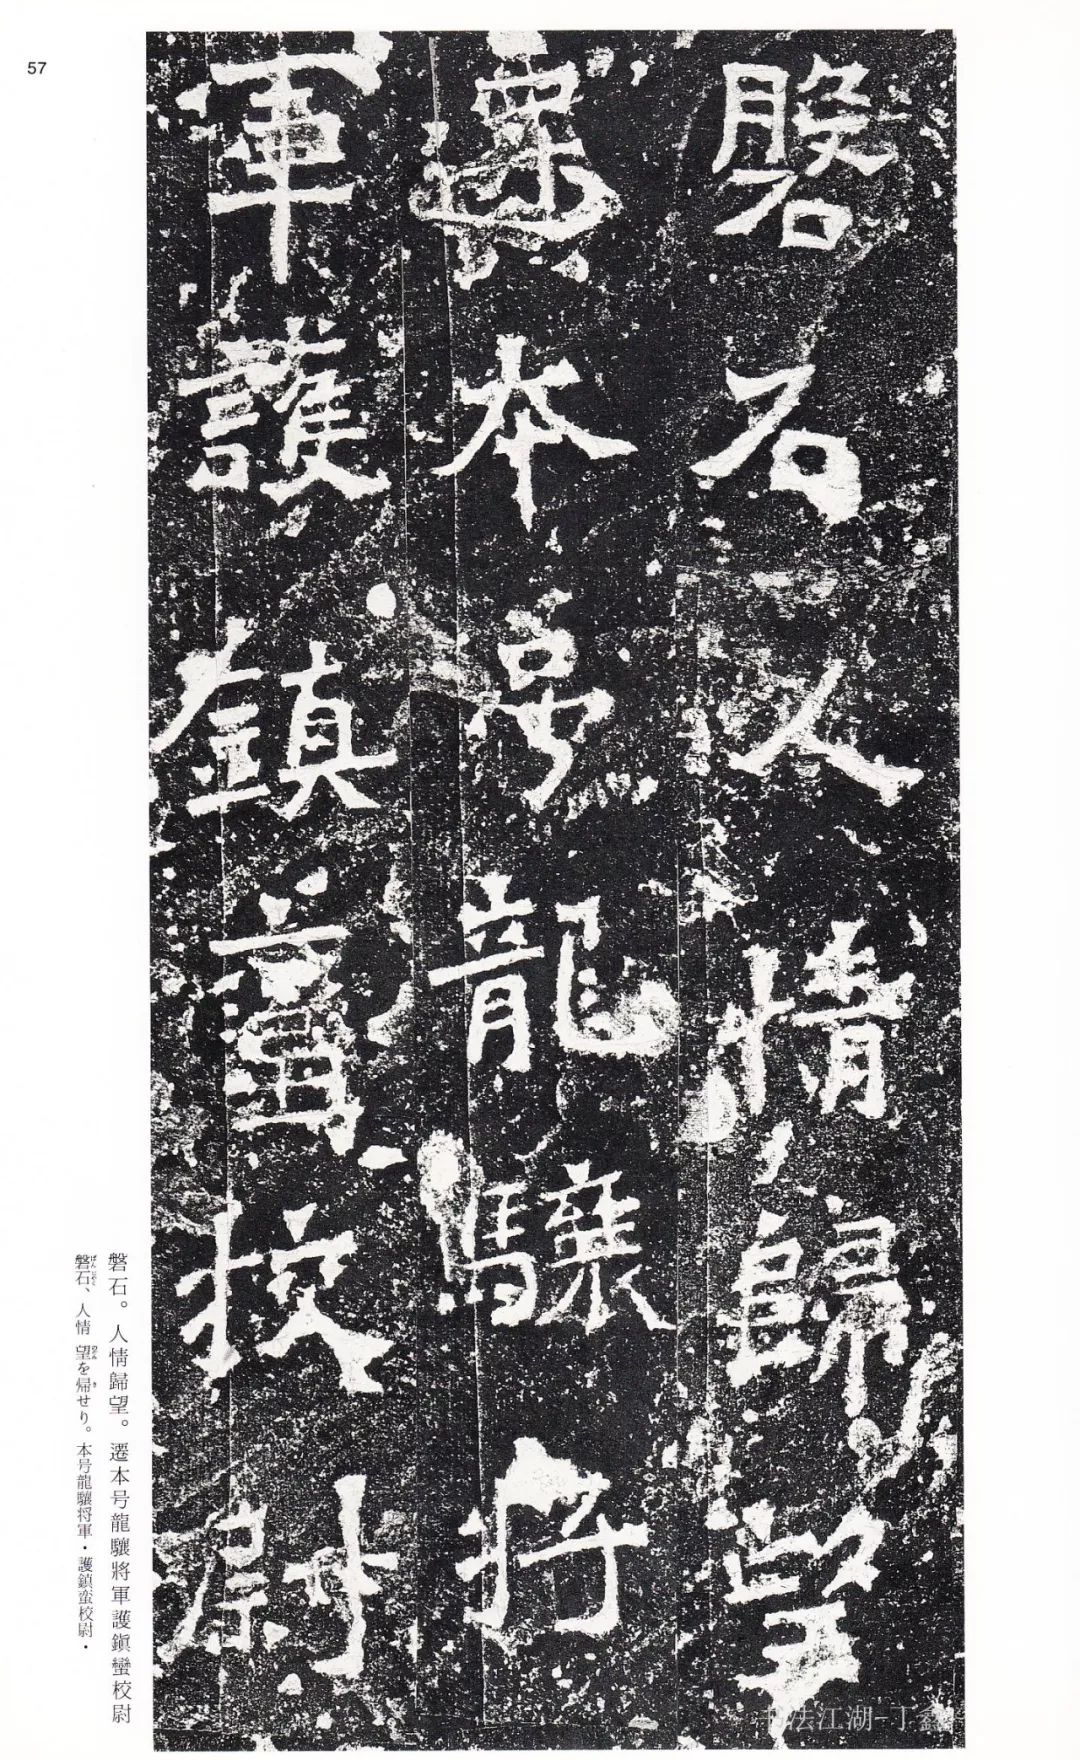 57
磐石人情歸望
遷本号龍驤將
軍護鎮蠻校尉
磐石。人情歸望。遷本号龍驤將軍護鎭蠻校尉
磐石、人情 望を帰せり。本号龍驤将軍・護鎮蛮校尉・
书法江湖-丁鑫